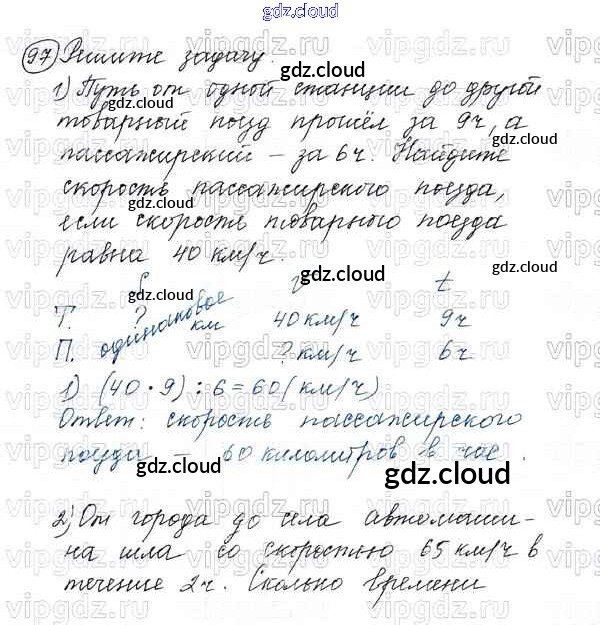 gdz.cloud
97 Решите задачу.
1) Путь от одной станции до другой
товарный поезд прошёл за 9ч, а
пассажирский – за 6ч. Найдите
скорость пассажирского поезда,
если скорость товарного поезда
равна 40 км/ч.
S V t
Т. ? км 40 км/ч 9ч
П. одинаковое ? км/ч 6ч
1) (40 · 9) : 6 = 60 (км/ч)
Ответ: скорость пассажирского
поезда – 60 километров в час.
2) От города до села автомаши-
на шла со скоростью 65 км/ч в
течение 2ч. Сколько времени
gdz.cloud
gdz.cloud
gdz.cloud
gdz.cloud
gdz.cloud
gdz.cloud
gdz.cloud
gdz.cloud
gdz.cloud
gdz.cloud
gdz.cloud
vipgdz.ru